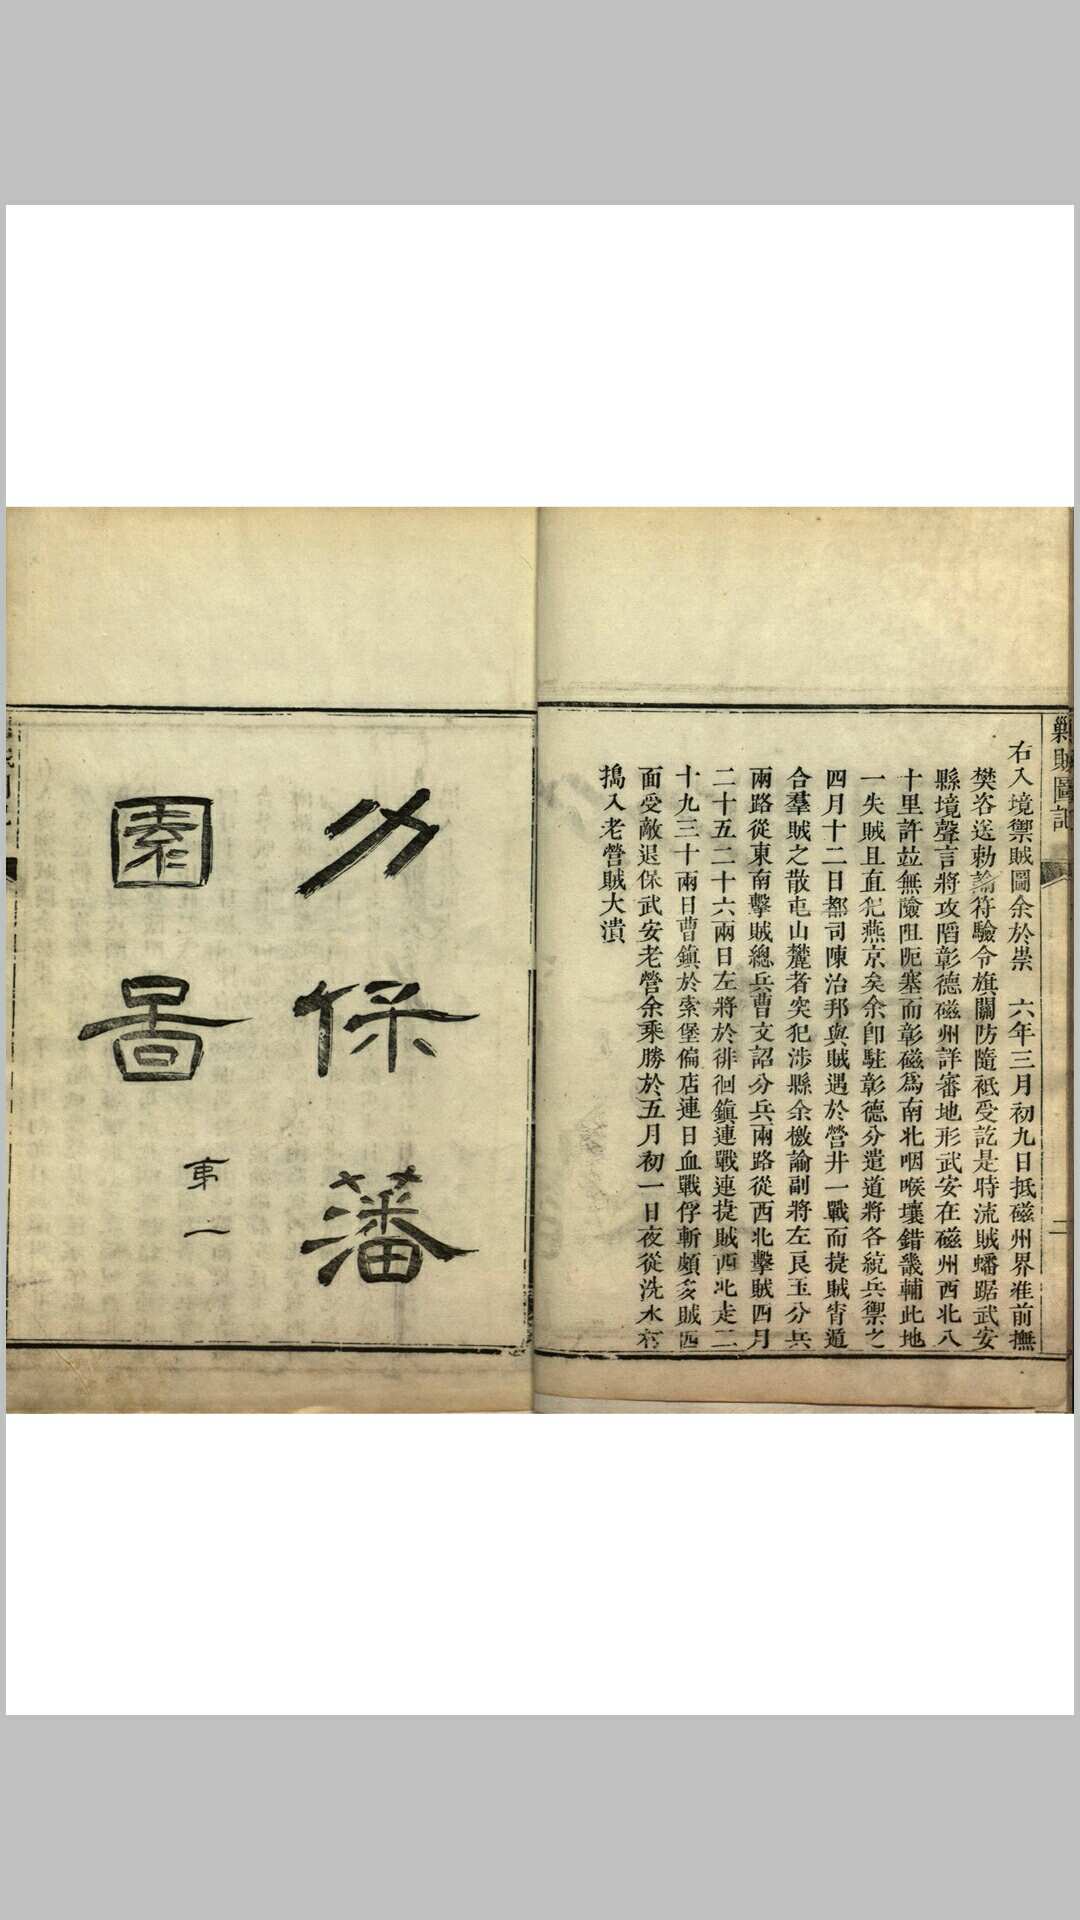 剿賊圖記
二
右入境禦賊圖余於崇 六年三月初九日抵磁州界准前撫
樊咨送勅諭符驗令旗關防隨祗受訖是時流賊蟠踞武安
縣境聲言將攻䧟彰德磁州詳審地形武安在磁州西北八
十里許並無險阻阨塞而彰磁爲南北咽喉壤錯畿輔此地
一失賊且直犯燕京矣余卽駐彰德分遣道將各統兵禦之
四月十二日都司陳治邦與賊遇於營井一戰而捷賊宵遁
合羣賊之散屯山麓者突犯涉縣余檄諭副將左良玉分兵
兩路從東南擊賊總兵曹文詔分兵兩路從西北擊賊四月
二十五二十六兩日左將於徘徊鎮連戰連捷賊西北走二
十九三十兩日曹鎮於索堡偏店連日血戰俘斬頗多賊四
面受敵退保武安老營余乘勝於五月初一日夜從洗水
搗入老營賊大潰
力保藩
園圖
第一